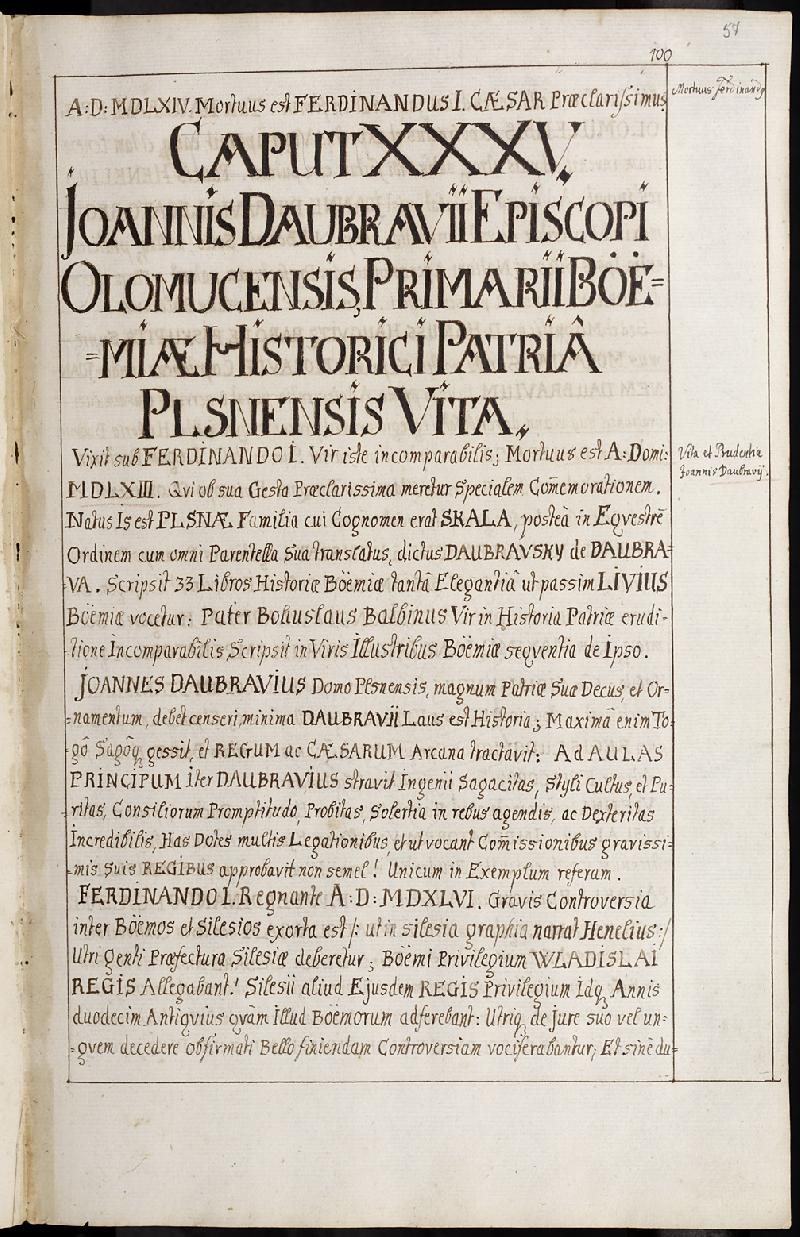 54
100
A: D: MDLXIV. Mortuus est FERDINANDUS I. CÆSAR Præclarissimus
Mortuus Ferdinandq
CAPUT XXXV.
JOANNIS DAUBRAVII EPISCOPI
OLOMUCENSIS, PRIMARII BÖE=
=MIÆ HISTORICI PATRIÂ
PLSNENSIS VITA.
Vixit sub FERDINANDO I. Vir iste incomparabilis; Mortuus est A: Domi:
Vita et Prudentia
Joannis Daubravij.
MDLXIII. Qvi ob sua Gesta Præclarissima meretur Specialem Com̄emorationem.
Natus Is est PLSNÆ Familia cui Cognomen erat SKALA, posteà in Eqvestrē
Ordinem cum omni Parentella Sua translatus, dictus DAUBRAVSKY de DAUBRA=
VA. Scripsit 33 Libros Historiæ Böemiæ tantâ Elegantiâ ut passim LIVIUS
Böemiæ vocetur: Pater Bohuslaus Balbinus Vir in Historia Patriæ erudi-
tione Incomparabilis, Scripsit in Viris Illustribus Böemiæ seqventia de Ipso.
JOANNES DAUBRAVIUS Domo Plsnensis, magnum Patriæ Suæ Decus, et Or=
=namentum, debet censeri, minima DAUBRAVII Laus est Historia; Maximâ enim To=
gô Sagôq gessit, et REGUM ac CÆSARUM Arcana tractavit: Ad AULAS
PRINCIPUM Iter DAUBRAVIUS stravit Ingenii Sagacitas, Styli Cultus, et Pu=
ritas, Consiliorum Promptitudo, Probitas, Solertia in rebus agendis, ac Dexteritas
Incredibilis, Has Dotes multis Legationibus, et ut vocant Com̄issionibus gravissi=
=mis suis REGIBUS approbavit non semel! Unicum in Exemplum referam.
FERDINANDO I. Regnante A: D: MDXLVI. Gravis Controversia
inter Böemos et Silesios exorta est /: ut in silesia graphia narrat Henelius :/
Utri genti Præfectura Silesiæ deberetur; Böemi Privilegium WLADISLAI
REGIS Allegabant! Silesii aliud Ejusdem REGIS Privilegium Idq Annis
duodecim Antiqvius qvàm Illud Böemorum adferebant: Utriq de jure suo vel un=
=gvem decedere obfirmati Bello finiendam Controversiam vociferabantur; Et sinè du=